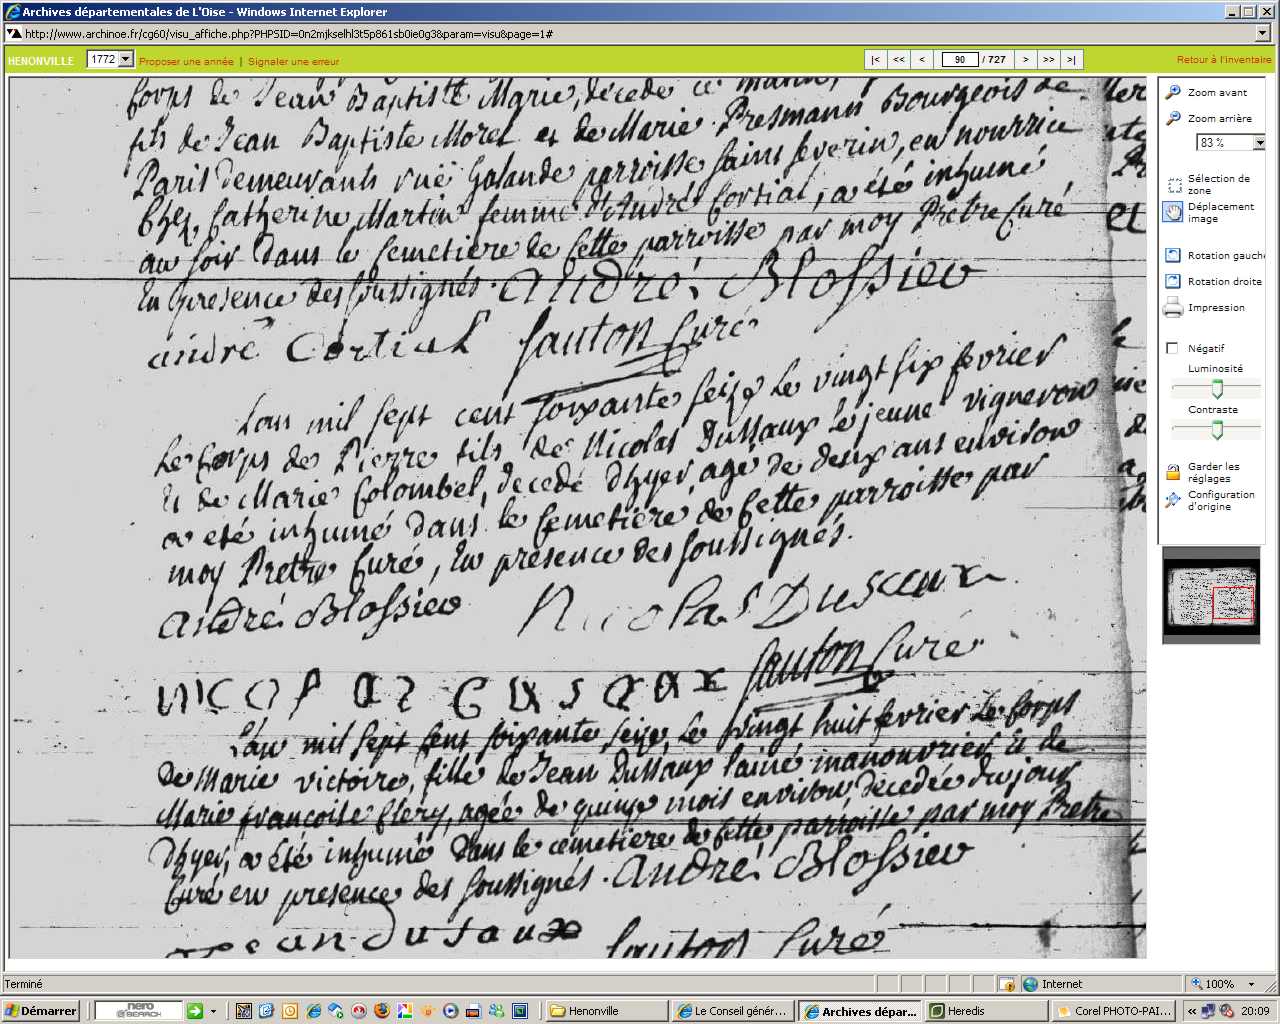 Archives départementales de L'Oise - Windows Internet Explorer
http://www.archinoe.fr/cg60/visu_affiche.php?PHPSID=0n2mjkselhl3t5p861sb0ie0g3&param=visu&page=1#
HENONVILLE 1772 Proposer une année | Signaler une erreur |< << < 90 / 727 > >> >| Retour à l'inventaire
Corps de Jean Baptiste Marie, décédé ce matin,
fils de Jean Baptiste Morel et de Marie Presmann Bourgeois de
Paris demeurants ruë Galande parroisse saint severin, en nourrice
Chez Catherine Martin femme d'André Cortial, a été inhumé
au soir dans le Cemetiere de Cette parroisse par moy Pretre Curé
En presence des soussignés. andré Blossieu
andré Cortial Santon Curé
Lan mil sept cent soixante seize Le vingt six fevrier
Le Corps de Pierre fils de Nicolas Dussaux Le jeune vigneron
Et de Marie Colombel, decedé d'hyer, agé de deux ans environ
a été inhumé dans le Cemetiere de Cette parroisse par
moy Pretre Curé, En presence des soussignés.
andré Blossieu Nicolas Dusaux
Santon Curé
L'an mil sept Cent soixante seize, Le vingt huit fevrier Le Corps
de Marie victoire, fille de Jean Dussaux l'ainé manouvrier Et de
Marie francoise Clery, agée de quinze mois environ, decedée du jour
d'hyer, a été inhumé dans le cemetiere de Cette parroisse par moy Pretre
Curé en presence des soussignés. andré Blossieu
Jean dusaux Santon Curé
Zoom avant
Zoom arrière
83 %
Sélection de
zone
Déplacement
image
Rotation gauche
Rotation droite
Impression
Négatif
Luminosité
Contraste
Garder les
réglages
Configuration
d'origine
Terminé Internet 100%
Démarrer nero SEARCH Henonville Le Conseil génér... Archives dépar... Heredis Corel PHOTO-PAI... 20:09